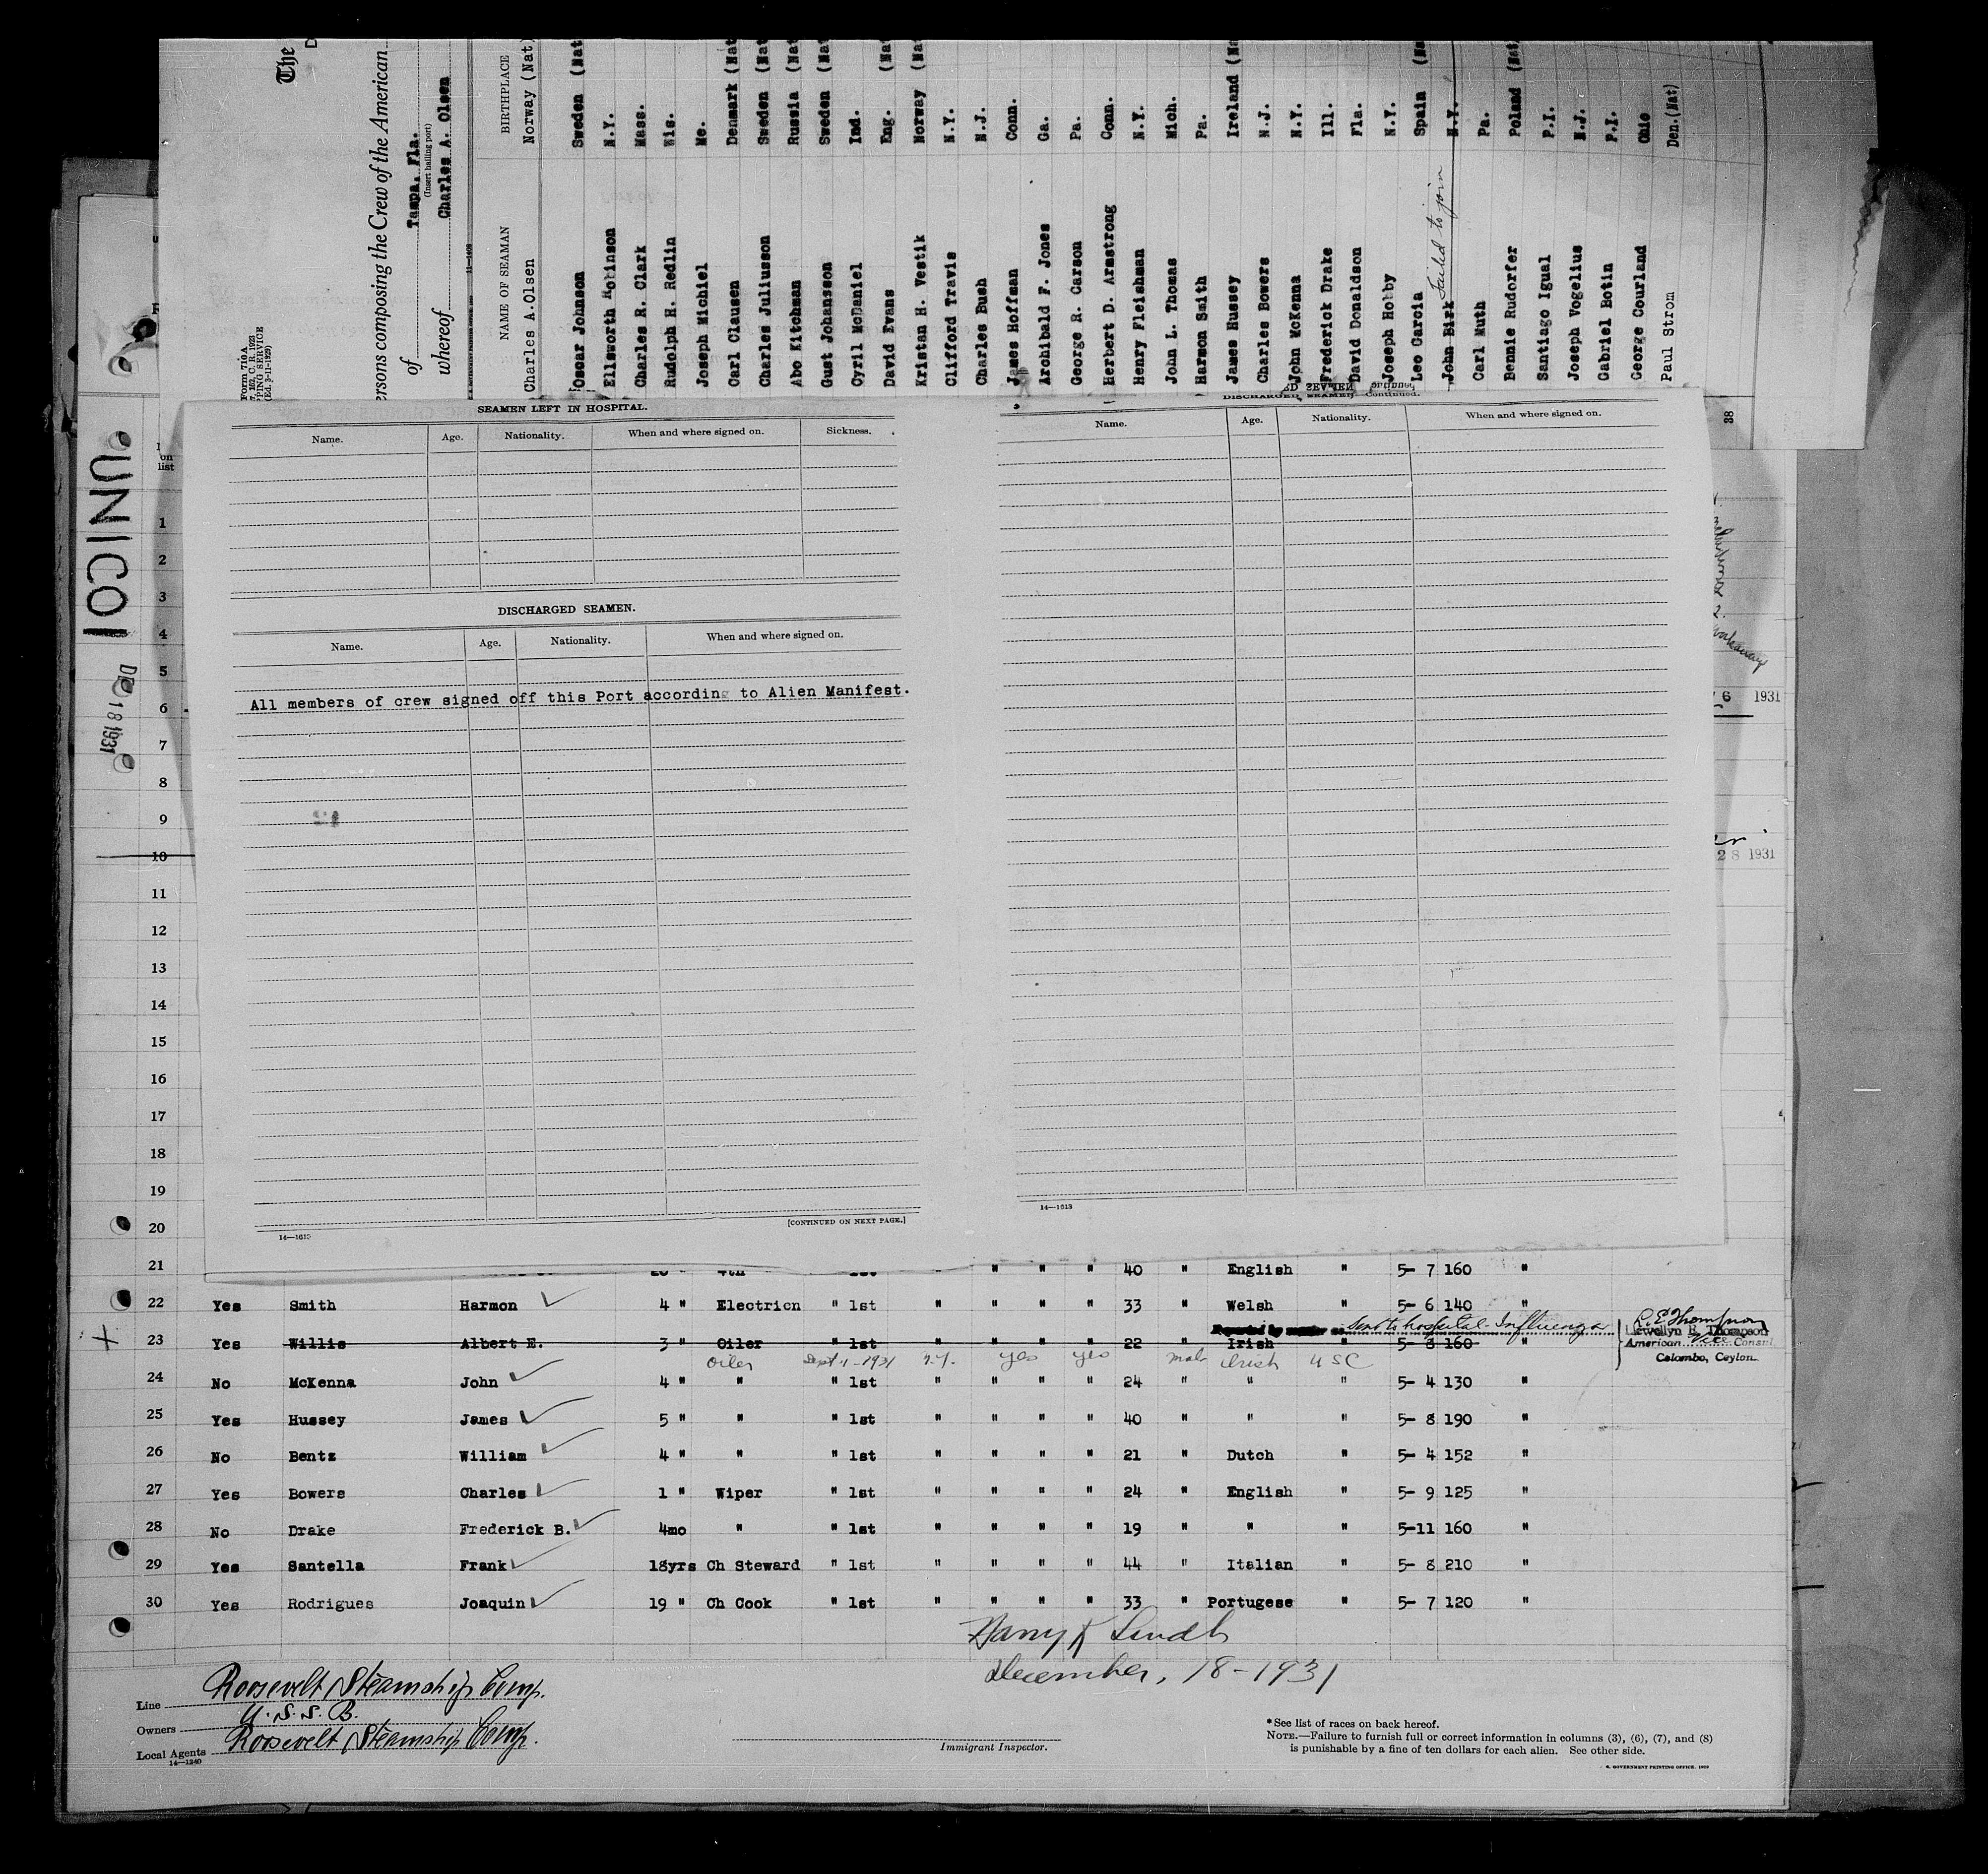 The
ersons composing the Crew of the American
of Tampa. Fla.
(Insert hailing port)
whereof Charles A. Olsen
Form 710 A
(Ed. 3-11-1929)
NAME OF SEAMAN BIRTHPLACE
Charles A.Olsen Norway (Nat)
Oscar Johnson Sweden (Nat
Ellsworth Robinson N.Y.
Charles R. Clark Mass.
Rudolph H. Redlin Wis.
Joseph Michiel Me.
Carl Clausen Denmark (Nat
Charles Juliusson Sweden (Nat
Abo Kitchman Russia (Nat
Gust Johansson Sweden (Nat
Cyril McDaniel Ind.
David Evans Eng. (Nat
Kristan H. Vestik Norway (Nat
Clifford Travis N.Y.
Charles Bush N.J.
James Hoffman Conn.
Archibald F. Jones Ga.
George R. Carson Pa.
Herbert D. Armstrong Conn.
Henry Fleishman N.Y.
John L. Thomas Mich.
Harmon Smith Pa.
James Hussey Ireland (Na
Charles Bowers N.J.
John McKenna N.Y.
Frederick Drake Ill.
David Donaldson Fla.
Joseph Hobby N.Y.
Leo Garcia Spain (Na
John Birk Failed to join N.Y.
Carl Muth Pa.
Bennie Rudorfer Poland (Nat)
Santiago Igual P.I.
Joseph Vogelius N.J.
Gabriel Botin P.I.
George Courland Ohio
Paul Strom Den.(Nat)
38
UNICOI
DE 18 1931
on
list
SEAMEN LEFT IN HOSPITAL.
Name. Age. Nationality. When and where signed on. Sickness.
DISCHARGED SEAMEN.
Name. Age. Nationality. When and where signed on.
All members of crew signed off this Port according to Alien Manifest.
[CONTINUED ON NEXT PAGE.]
DISCHARGED SEAMEN—Continued.
Name. Age. Nationality. When and where signed on.
14—1613
6 1931
28 1931
1
2
3
4
5
6
7
8
9
10
11
12
13
14
15
16
17
18
19
20
21 " " " 40 " English " 5- 7 160 "
22 Yes Smith Harmon 4 " Electricn " 1st " " " " 33 " Welsh " 5- 6 140 "
Sent to hospital - Influenza
23 Yes Willis Albert E. 3 " Oiler " 1st " " " " 22 " Irish " 5- 8 160 "
Oiler Sept 11 - 1931 N.Y. yes yes male Irish USC
24 No McKenna John 4 " " " 1st " " " " 24 " " " 5- 4 130 "
25 Yes Hussey James 5 " " " 1st " " " " 40 " " " 5- 8 190 "
26 No Bentz William 4 " " " 1st " " " " 21 " Dutch " 5- 4 152 "
27 Yes Bowers Charles 1 " Wiper " 1st " " " " 24 " English " 5- 9 125 "
28 No Drake Frederick B. 4mo " " 1st " " " " 19 " " " 5-11 160 "
29 Yes Santella Frank 18yrs Ch Steward " 1st " " " " 44 " Italian " 5- 8 210 "
30 Yes Rodrigues Joaquin 19 " Ch Cook " 1st " " " " 33 " Portugese " 5- 7 120 "
L.E Thompson
Llewellyn E. Thompson
American Vice Consul
Colombo, Ceylon.
Harry K Lindh
December, 18-1931
Line Roosevelt Steamship Comp.
Owners U.S.S.B.
Local Agents Roosevelt Steamship Comp.
14—1240
Immigrant Inspector.
*See list of races on back hereof.
NOTE.—Failure to furnish full or correct information in columns (3), (6), (7), and (8)
is punishable by a fine of ten dollars for each alien. See other side.